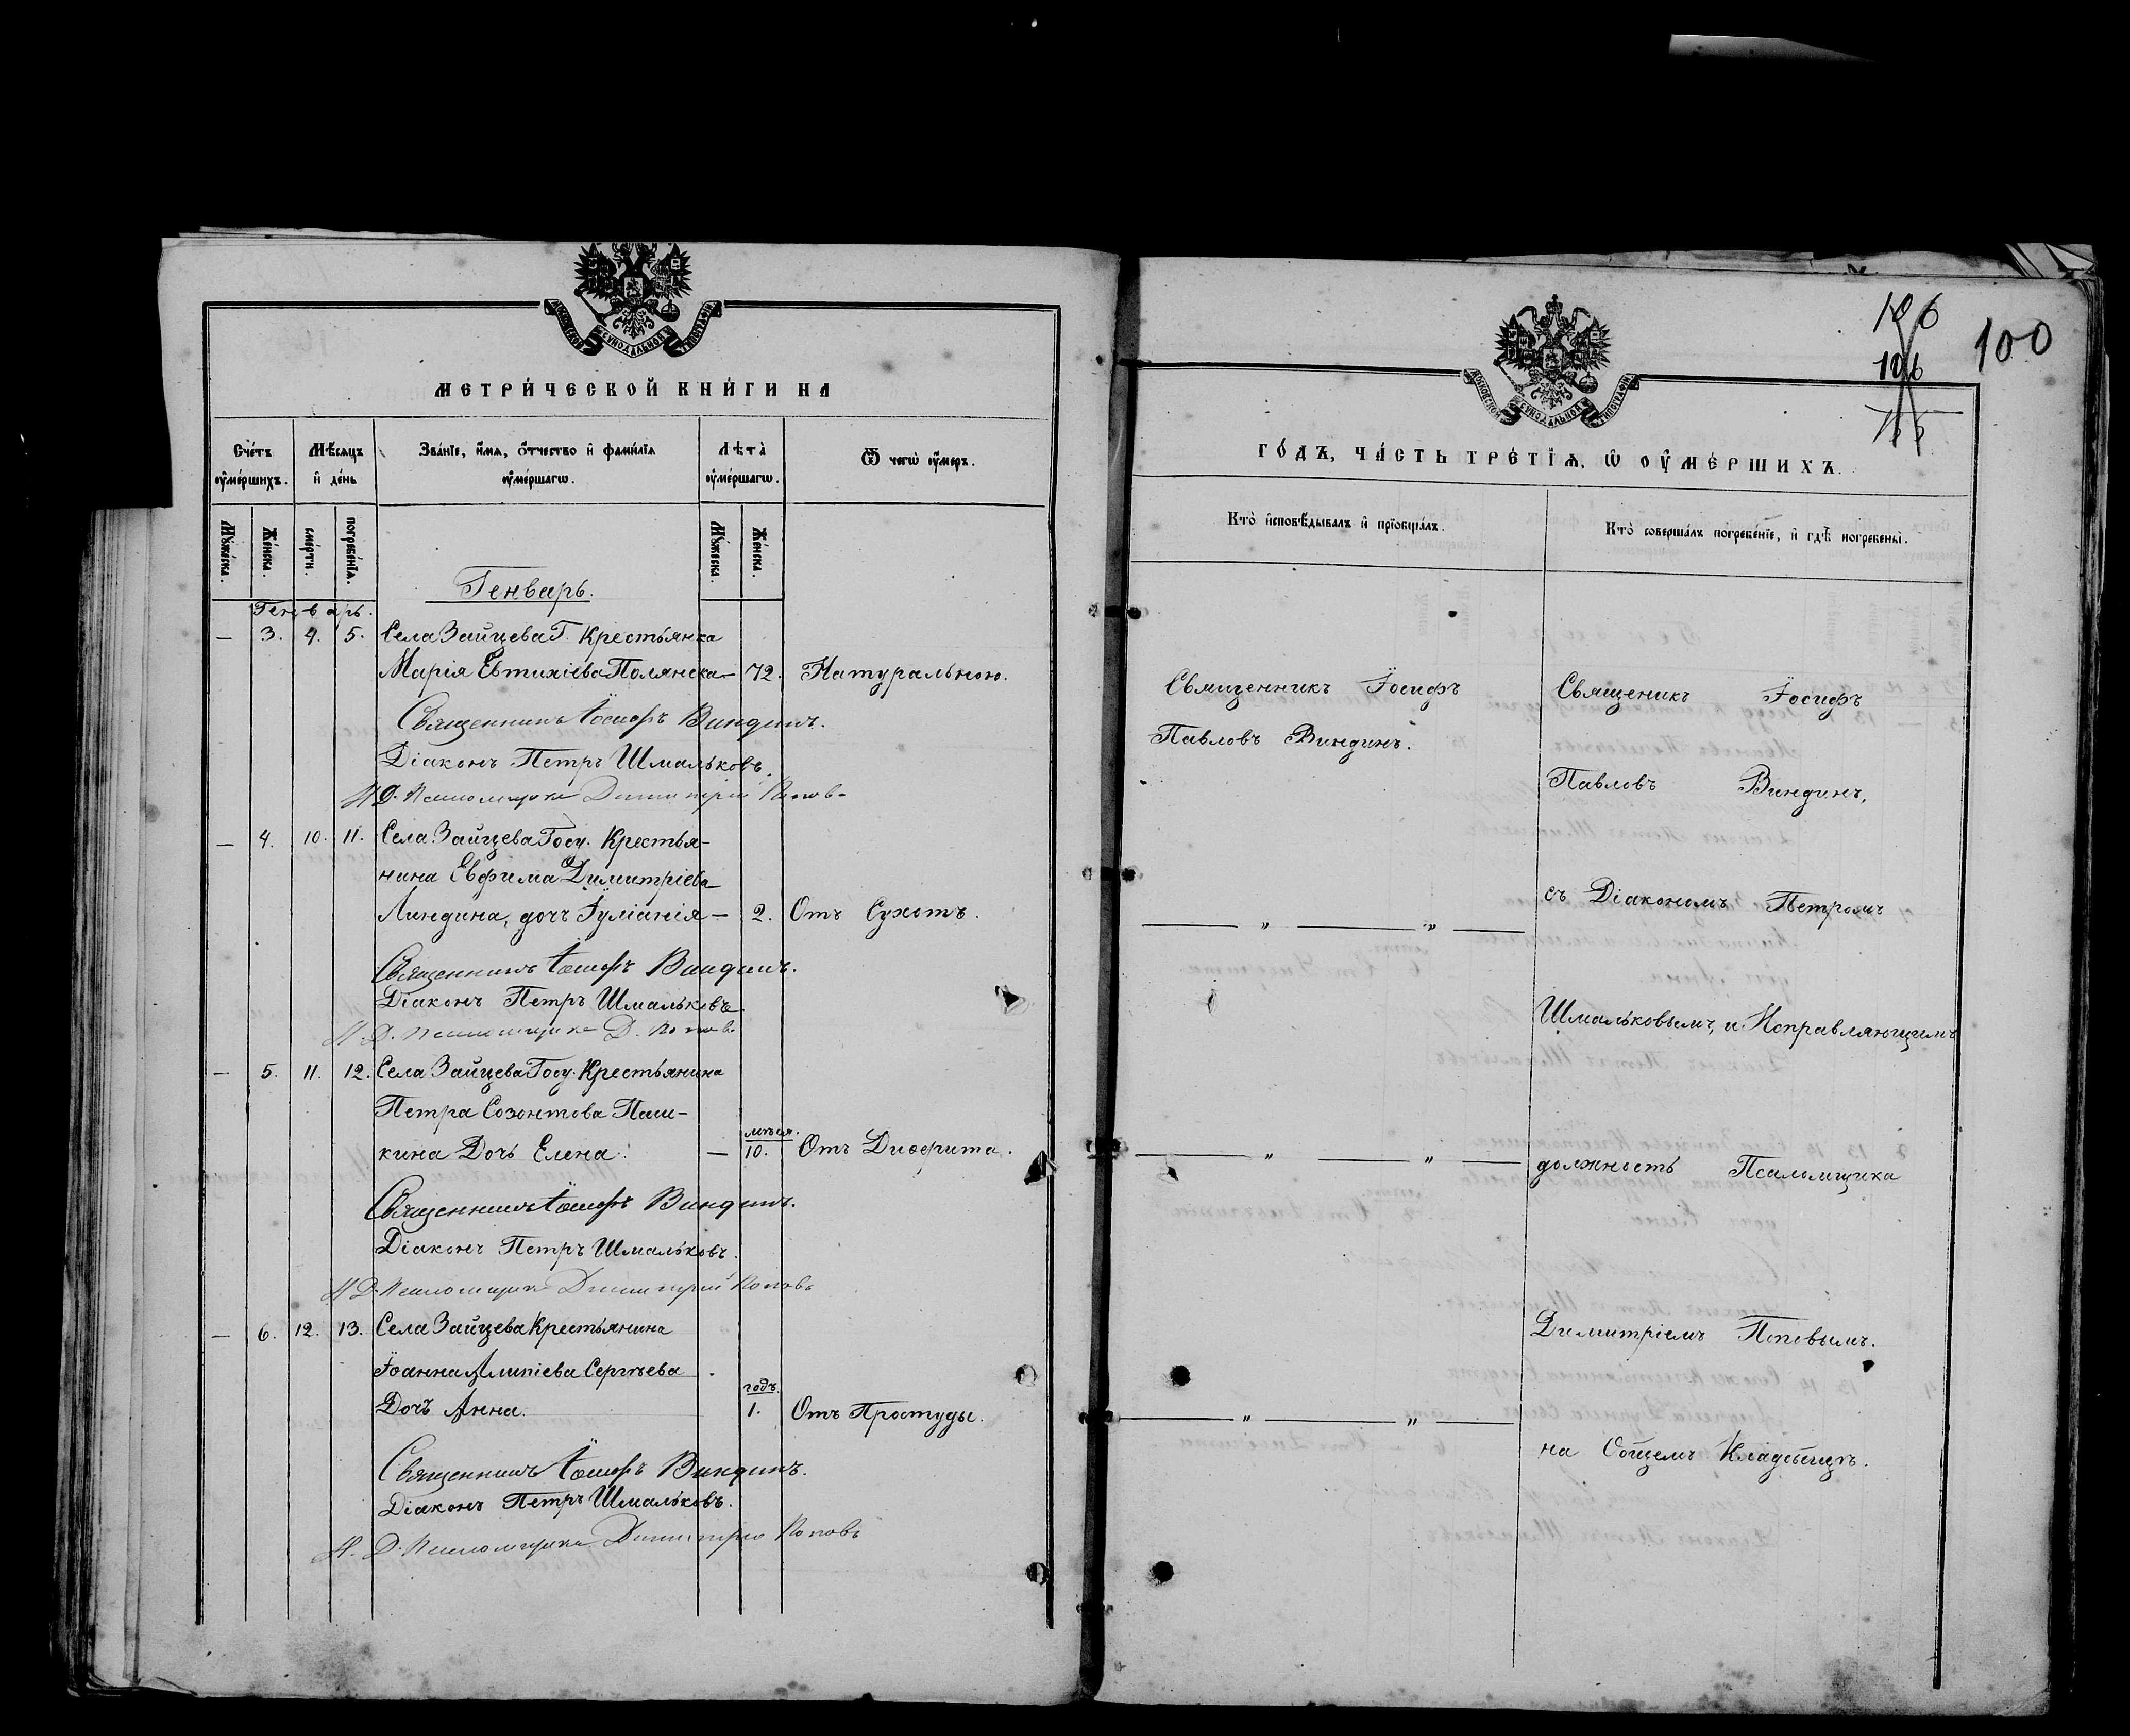 МОСКОВСКОЙ СѴНОДАЛЬНОЙ ТИПОГРАФІИ
МЕТРИ́ЧЕСКОЙ КНИ́ГИ НА
Сче́тъ оу҆ме́ршихъ.
Мѣ́сяцъ и҆ де́нь
Зва́нїе, и҆́мя, ѻ҆́тчество и҆ фами́лїя оу҆ме́ршагѡ.
Лѣ́та оу҆ме́ршагѡ.
Ѿ чегѡ̀ оу҆́меръ.
Мꙋ́жеска.
Же́нска.
сме́рти.
погребе́нїя.
Мꙋ́жеска.
Же́нска.
Генварь.
Генварь.
— 3. 4. 5. Села Зайцева Г. Крестьянка
Марія Евтихіева Полянска — 72. Натуральною.
Священникъ Іосифъ Виндинъ.
Діаконъ Петръ Шмальковъ.
И. Д. Псаломщика Димитрій Поповъ
— 4. 10. 11. Села Зайцева Госу. Крестья-
нина Евфима Димитріева
Линдина, дочь Іуліанія — 2. Отъ Сухотъ.
Священникъ Іосифъ Виндинъ.
Діаконъ Петръ Шмальковъ.
И. Д. Псаломщика Д. Поповъ
— 5. 11. 12. Села Зайцева Госу. Крестьянина
Петра Созонтова Паш-
кина Дочь Елена. — мѣся. 10. Отъ Диѳерита.
Священникъ Іосифъ Виндинъ.
Діаконъ Петръ Шмальковъ.
И. Д. Псаломщика Димитрій Поповъ
— 6. 12. 13. Села Зайцева Крестьянина
Іоанна Алипіева Сергѣева
Дочь Анна. годъ. 1. Отъ Простуды.
Священникъ Іосифъ Виндинъ.
Діаконъ Петръ Шмальковъ.
И. Д. Псаломщика Димитрій Поповъ
106
106
100
МОСКОВСКОЙ СѴНОДАЛЬНОЙ ТИПОГРАФІИ
ГО́ДЪ, ЧА́СТЬ ТРЕ́ТЇЯ, Ѡ҆ ОУ҆МЕ́РШИХЪ.
Кто̀ и҆сповѣ́дывалъ и҆ прїобща́лъ.
Кто̀ соверша́лъ погребе́нїе, и҆ гдѣ̀ погребены̀.
Священникъ Іосифъ
Павловъ Виндинъ.
Священикъ Іосифъ
Павловъ Виндинъ,
съ Діакономъ Петромъ
Шмальковымъ, и Исправляющимъ
должность Псаломщика
Димитріемъ Поповымъ.
на Общемъ Кладбищѣ.